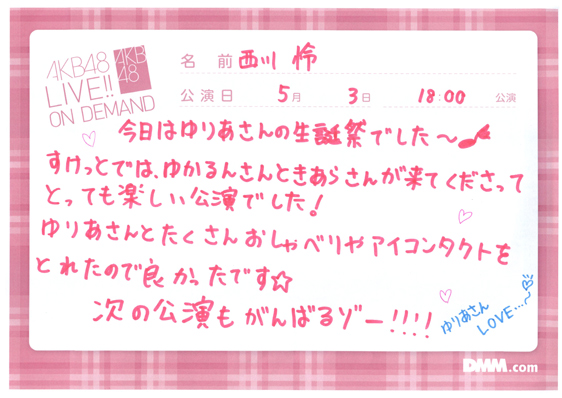 AKB48
LIVE!!
ON DEMAND
AKB
48
名前 西川 怜
公演日 5月 3日 18:00 公演
今日はゆりあさんの生誕祭でした〜
すけっとでは、ゆかるんさんときあらさんが来てくださって
とっても楽しい公演でした!
ゆりあさんとたくさんおしゃべりやアイコンタクトを
とれたので良かったです☆
次の公演もがんばるゾー!!!!
ゆりあさん
LOVE...〜
DMM.com